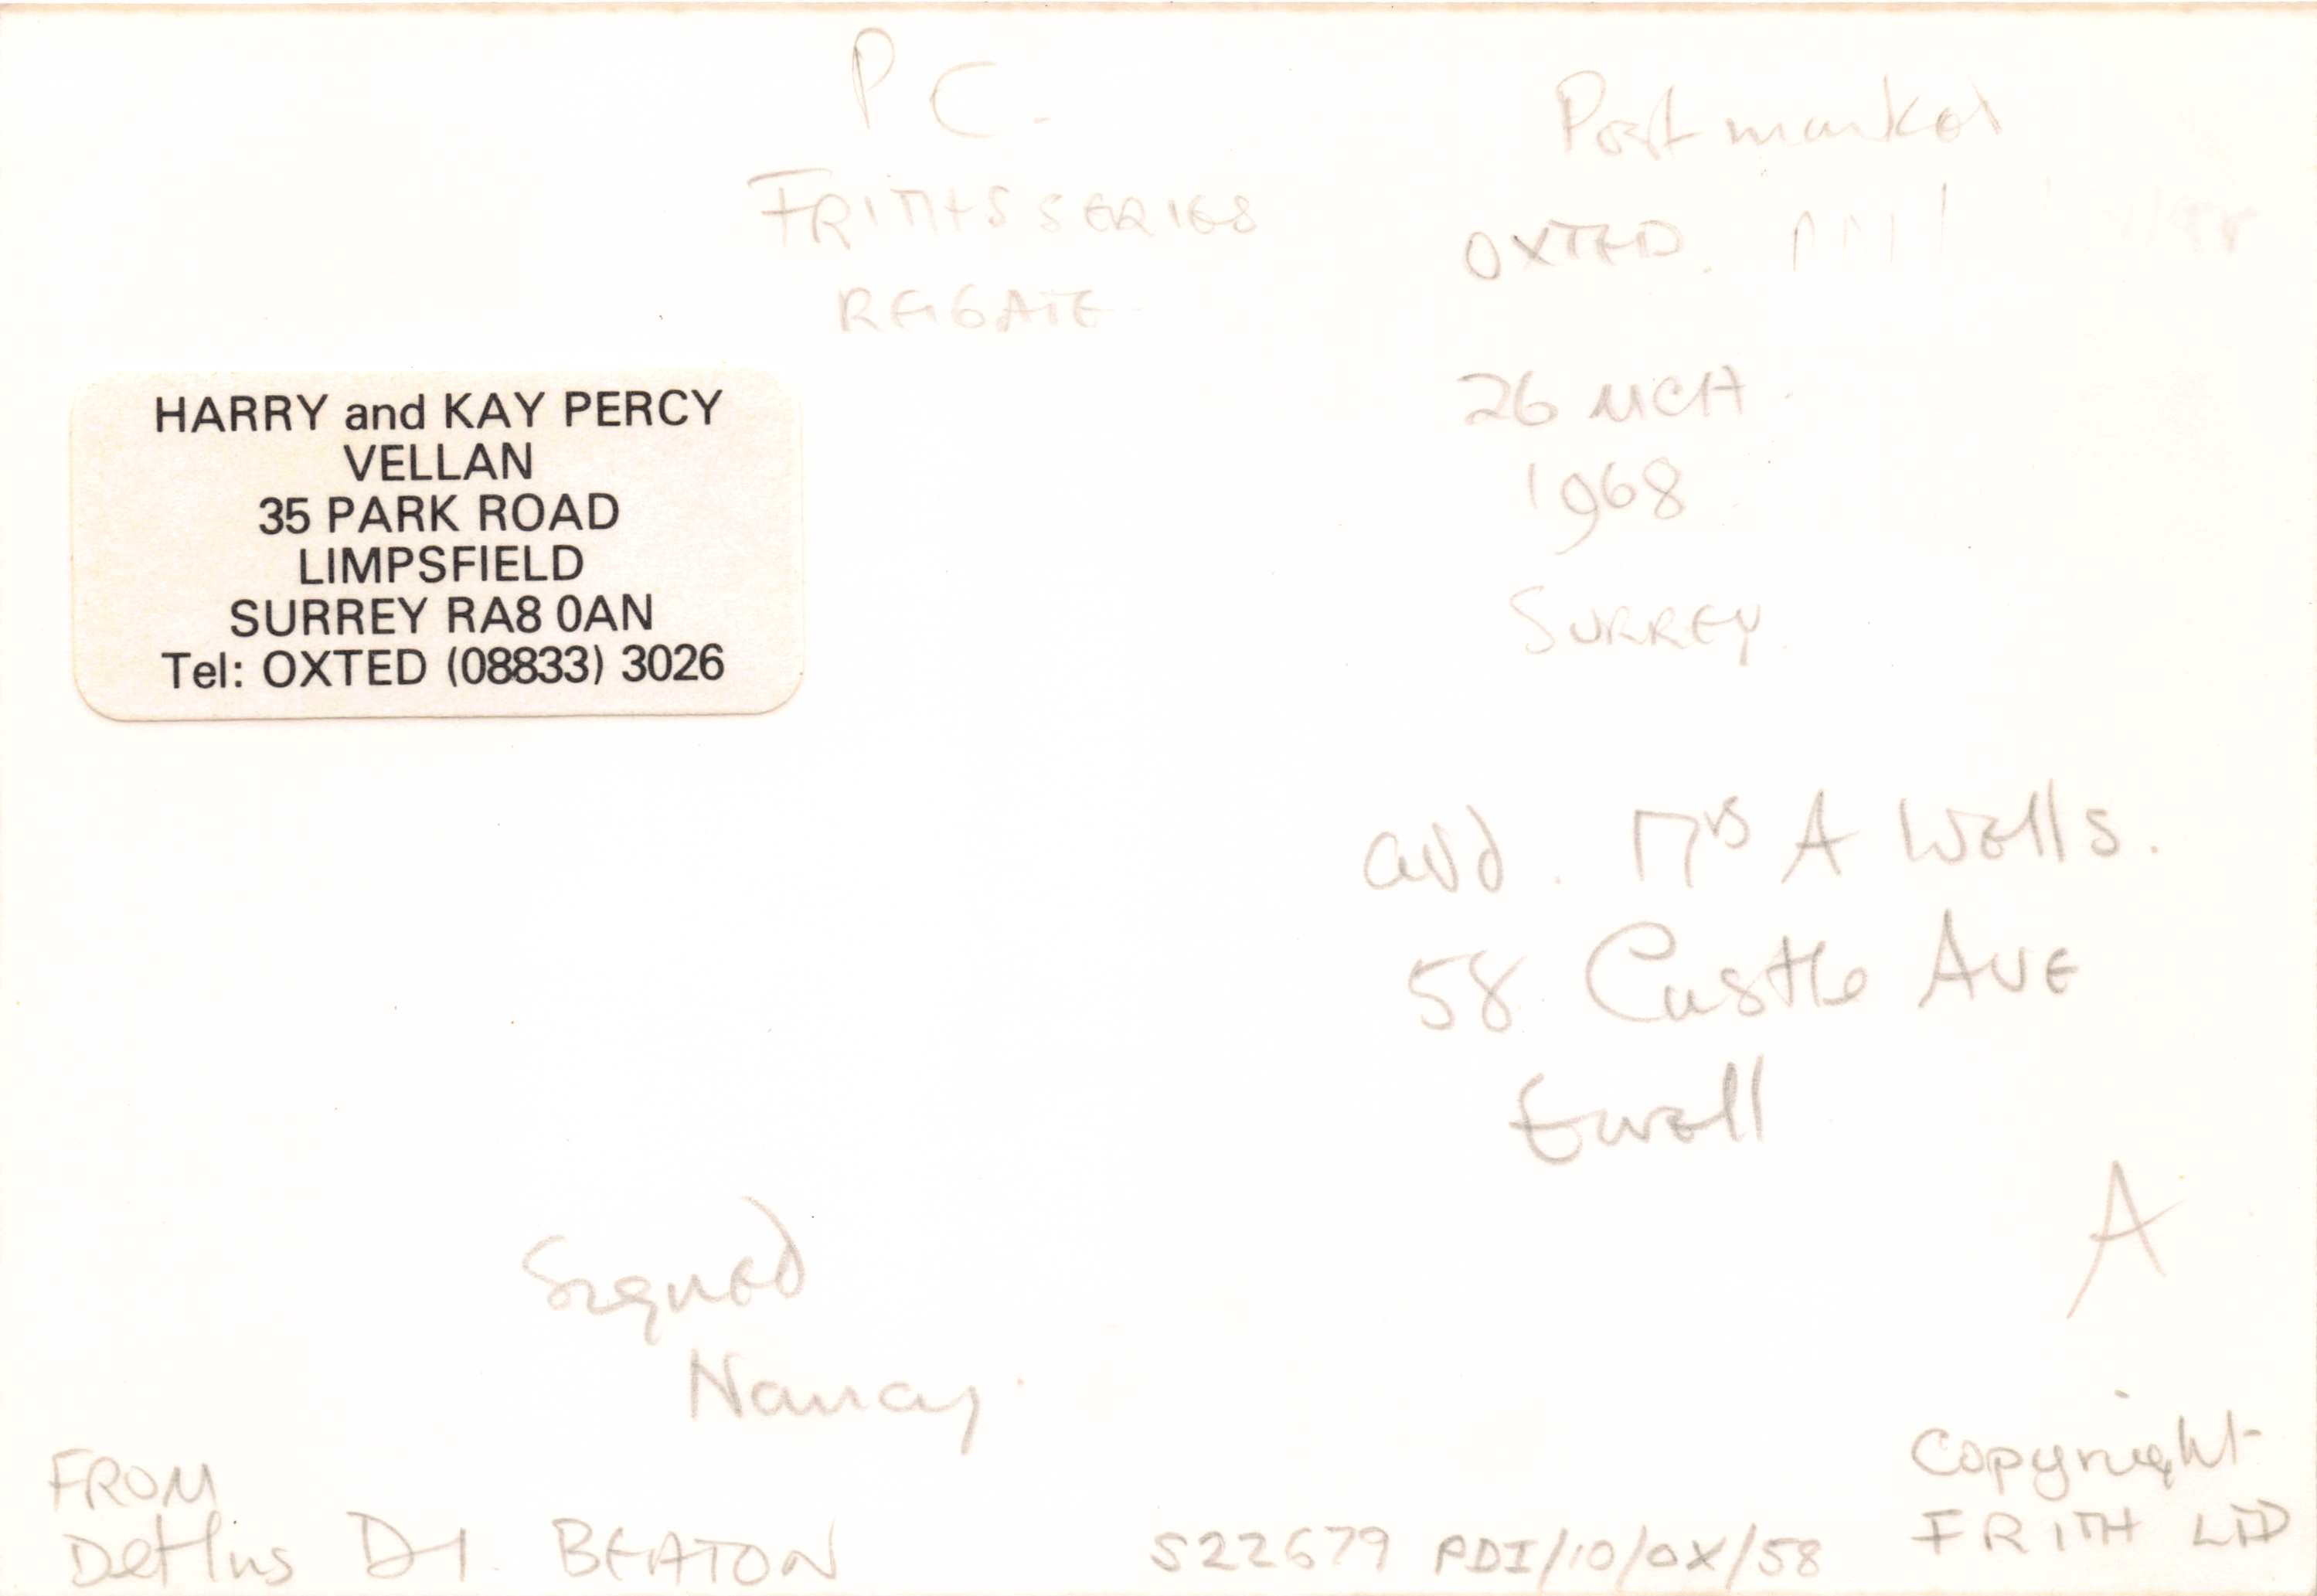 PC.
FRITHS SERIES
REIGATE
Postmarked
OXTED.
26 MCH
1968
SURREY.
HARRY and KAY PERCY
VELLAN
35 PARK ROAD
LIMPSFIELD
SURREY RA8 0AN
Tel: OXTED (08833) 3026
add. Mrs A Wells.
58 Castle AVE
Ewell
A
Signed
Nancy.
FROM
DI. BEATON
S22679 PDI/10/OX/58
Copyright
FRITH LTD